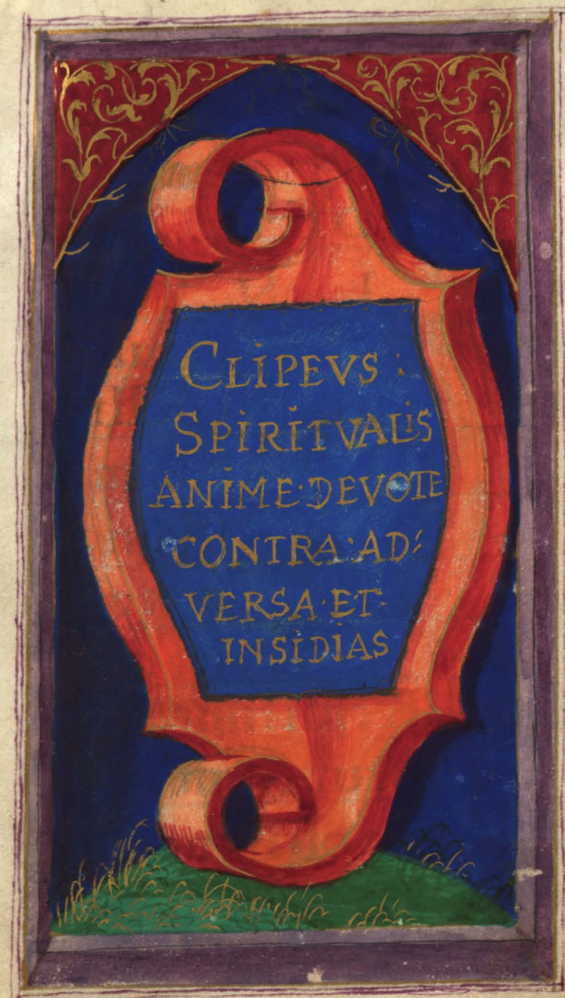 CLIPEVS :
SPIRITVALIS
ANIME·DEVOTE
CONTRA·AD:
VERSA·ET·
INSIDIAS